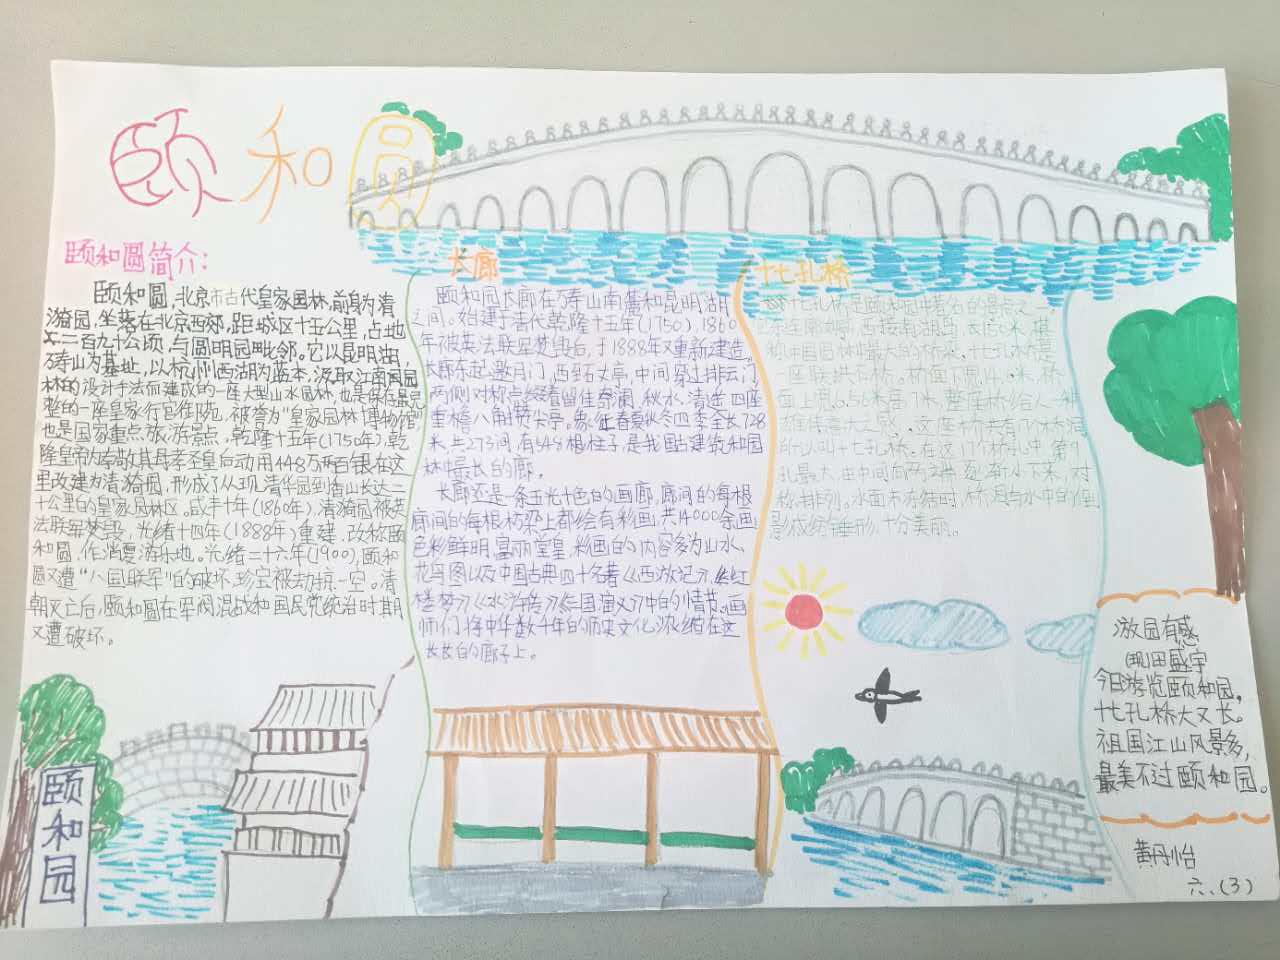 颐和圆
颐和圆简介:
颐和圆,北京市古代皇家园林,前身为清
漪园,坐落在北京西郊,距城区十五公里,占地
二百九十公顷,与圆明园毗邻。它以昆明湖
万寿山为基址,以杭州西湖为蓝本,汲取江南园
林的设计手法而建成的一座大型山水园林,也是保存最完
整的一座皇家行宫御苑,被誉为"皇家园林博物馆"
也是国家重点旅游景点。乾隆十五年(1750年),乾
隆皇帝为孝敬其母孝圣皇后动用448万两白银在这
里改建为清漪园,形成了从现清华园到香山长达二
十公里的皇家园林区。咸丰十年(1860年),清漪园被英
法联军焚毁。光绪十四年(1888年)重建,改称颐
和圆,作消夏游乐地。光绪二十六年(1900),颐和
圆又遭"八国联军"的破坏,珍宝被劫掠一空。清
朝灭亡后,颐和圆在军阀混战和国民党统治时期
又遭破坏。
长廊
颐和园长廊在万寿山南麓和昆明湖
之间。始建于清代乾隆十五年(1750),1860
年被英法联军焚毁后,于1888年又重新建造。
长廊东起邀月门,西到石丈亭,中间穿过排云门
两侧对称点缀着留佳,寄澜,秋水,清遥四座
重檐八角攒尖亭。象征春夏秋冬四季全长728
米,共273间,有548根柱子,是我国古建筑和园
林中最长的廊。
长廊还是一条五光十色的画廊,廊间的每根
廊间的每根枋梁上都绘有彩画,共14000余画,
色彩鲜明,富丽堂皇,彩画的内容多为山水、
花鸟图以及中国古典四大名著《西游记》《红
楼梦》《水浒传》《三国演义》中的情节。画
师们将中华数千年的历史文化浓缩在这
长长的廊子上。
十七孔桥
十七孔桥是颐和园中著名的景点之一
东连廓如亭,西接南湖岛,长150米,堪
称中国园林中最大的桥梁。十七孔桥是
一座联拱石桥。
面上宽6.56米高7米,整座桥给人一种
这座桥共有17个桥洞
所以叫十七孔桥。在这17个桥孔中,第9
孔最大,由中间向两端逐渐小下来,对
称排列。水面未冻结时,桥洞与水中的倒
影成纺锤形,十分美丽。
游园有感
田盛宇
今日游览颐和园,
十七孔桥大又长。
祖国江山风景多,
最美不过颐和园。
黄丹怡
六、(3)
颐和园